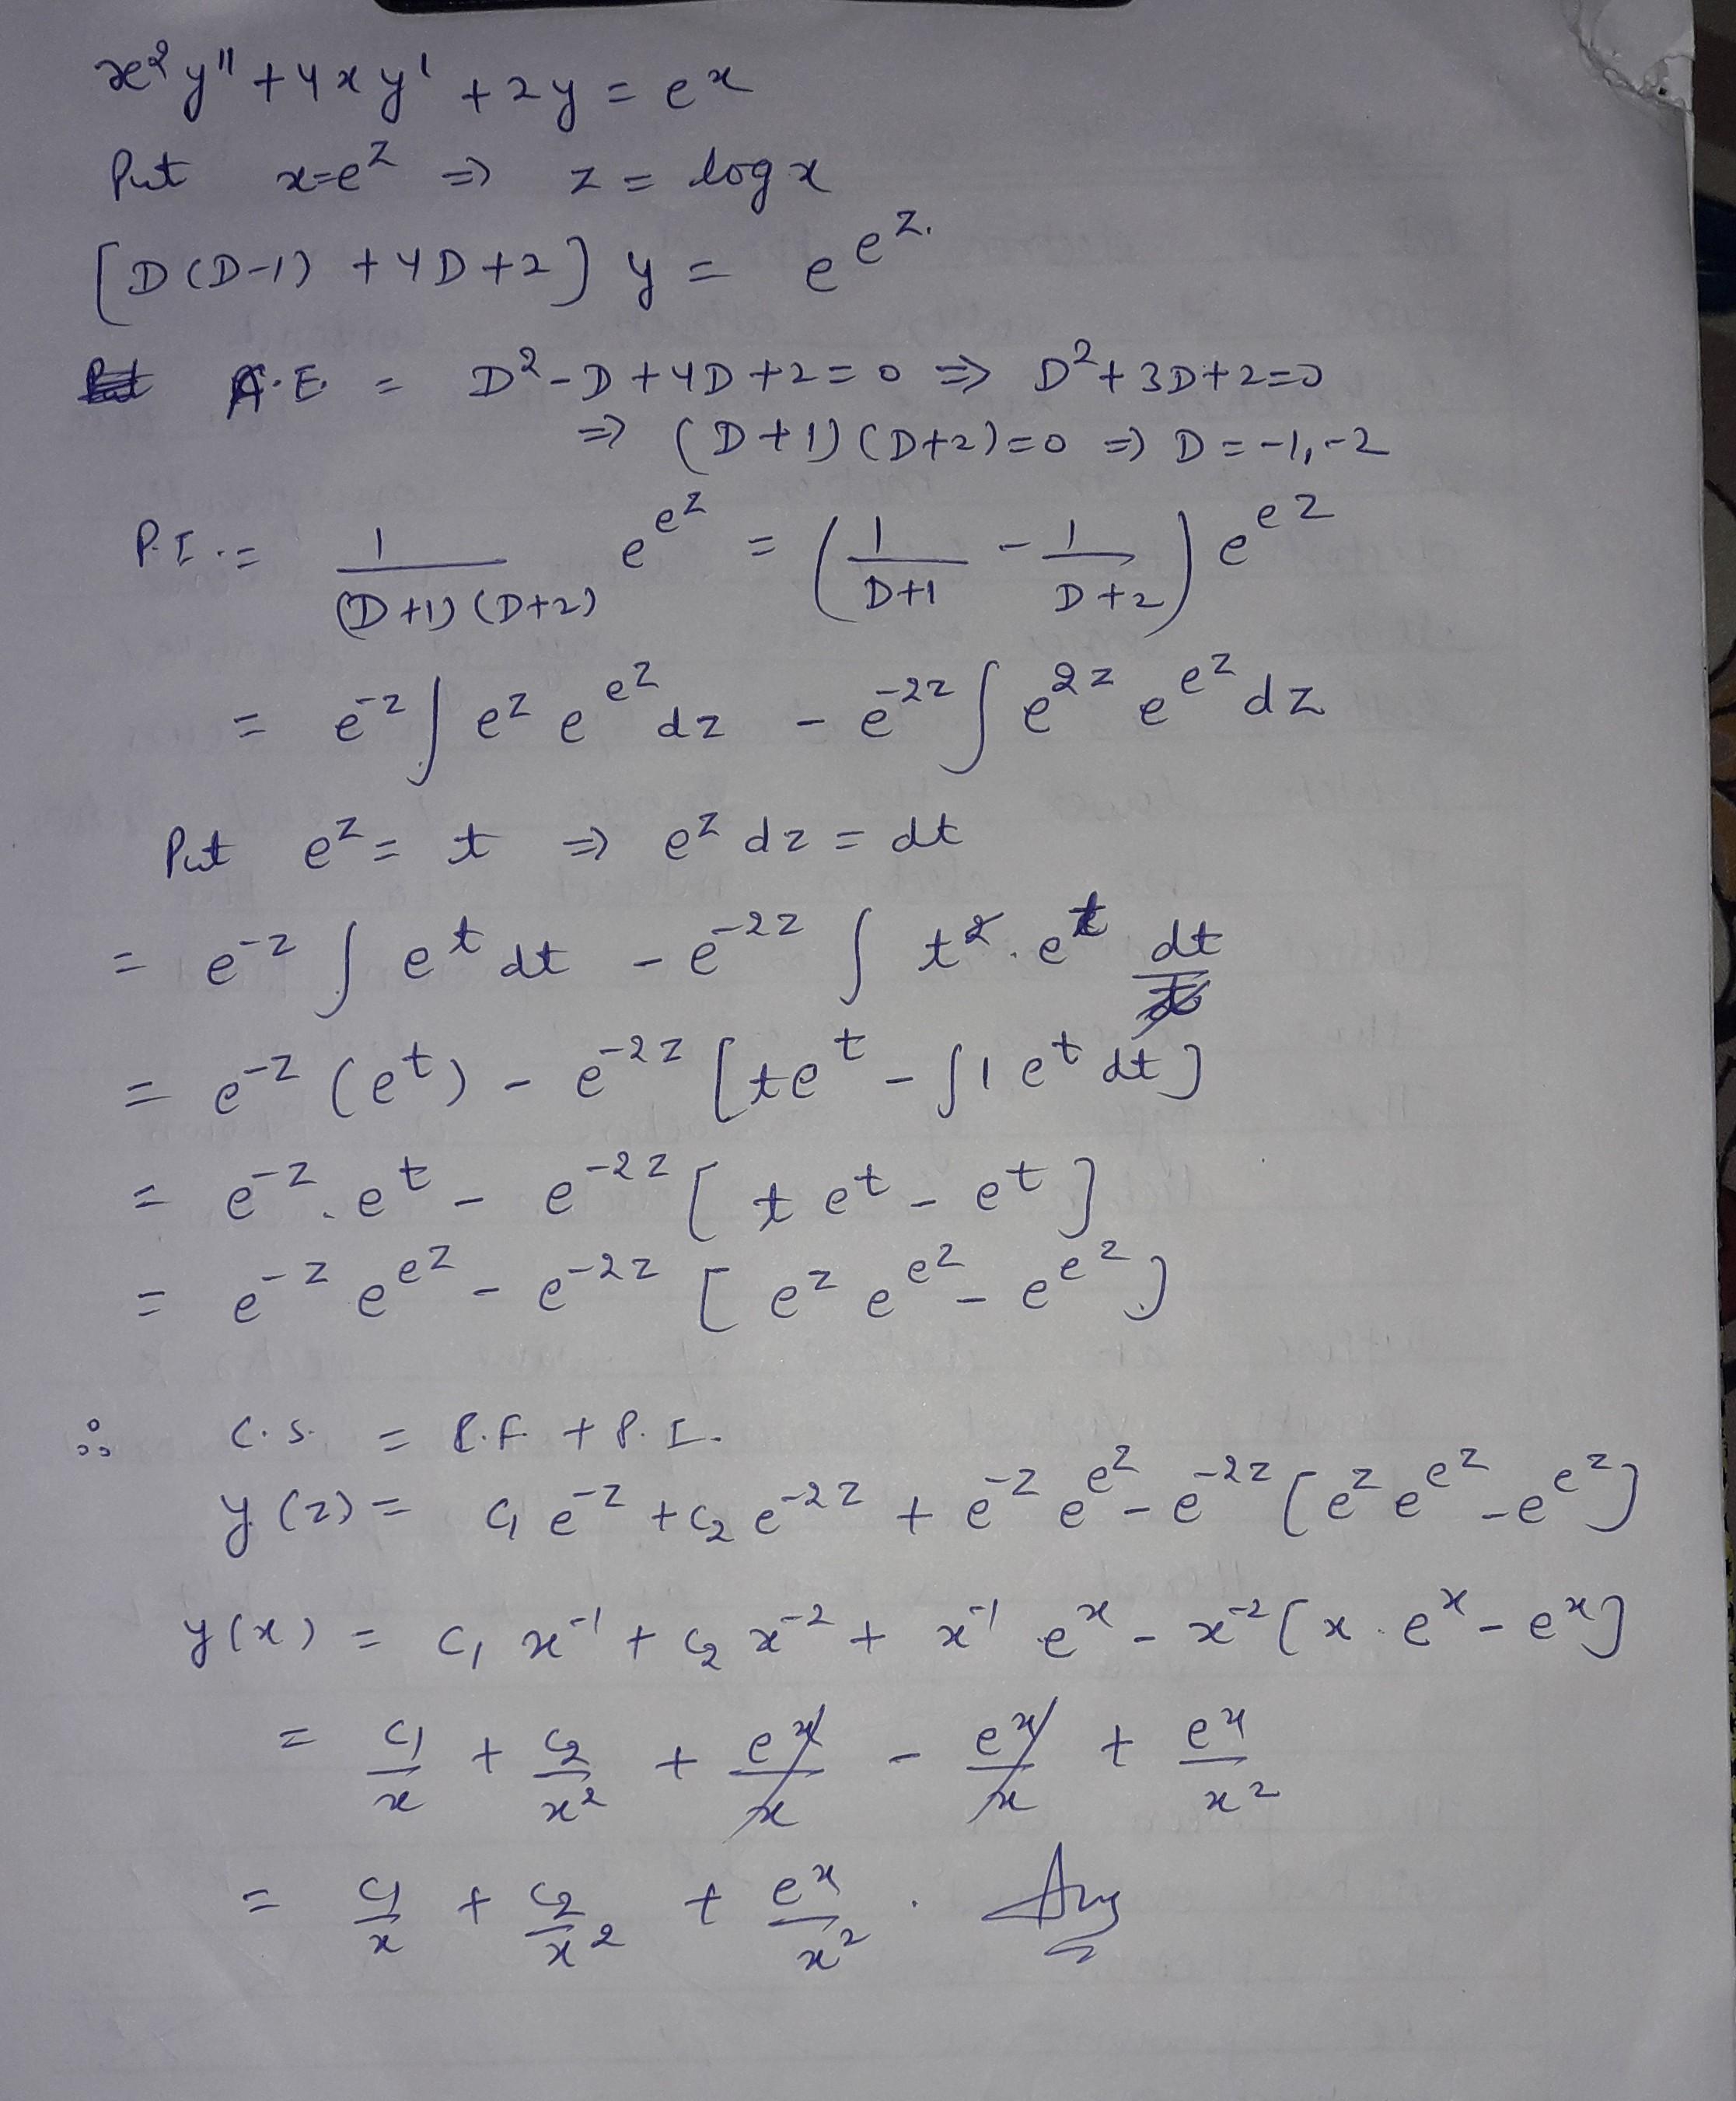 x²y'' + 4xy' + 2y = e^x
Put x=e^z ⇒ z = log x
[D(D-1) + 4D +2] y = e^{e^z}.
A.E. = D² - D + 4D + 2 = 0 ⇒ D² + 3D + 2 = 0
⇒ (D+1)(D+2)=0 ⇒ D = -1, -2
P.I. = \frac{1}{(D+1)(D+2)} e^{e^z} = (\frac{1}{D+1} - \frac{1}{D+2}) e^{e^z}
= e^{-z} ∫ e^z e^{e^z} dz - e^{-2z} ∫ e^{2z} e^{e^z} dz
Put e^z = t ⇒ e^z dz = dt
= e^{-z} ∫ e^t dt - e^{-2z} ∫ t^2 . e^t \frac{dt}{t}
= e^{-z} (e^t) - e^{-2z} [te^t - ∫1 e^t dt]
= e^{-z} . e^t - e^{-2z} [t e^t - e^t]
= e^{-z} e^{e^z} - e^{-2z} [e^z e^{e^z} - e^{e^z}]
∴ C.S. = C.F. + P.I.
y(z) = c₁ e^{-z} + c₂ e^{-2z} + e^{-z} e^{e^z} - e^{-2z} [e^z e^{e^z} - e^{e^z}]
y(x) = c₁ x^{-1} + c₂ x^{-2} + x^{-1} e^x - x^{-2} [x . e^x - e^x]
= \frac{c₁}{x} + \frac{c₂}{x²} + \frac{e^x}{x} - \frac{e^x}{x} + \frac{e^x}{x²}
= \frac{c₁}{x} + \frac{c₂}{x²} + \frac{e^x}{x²} . Ans